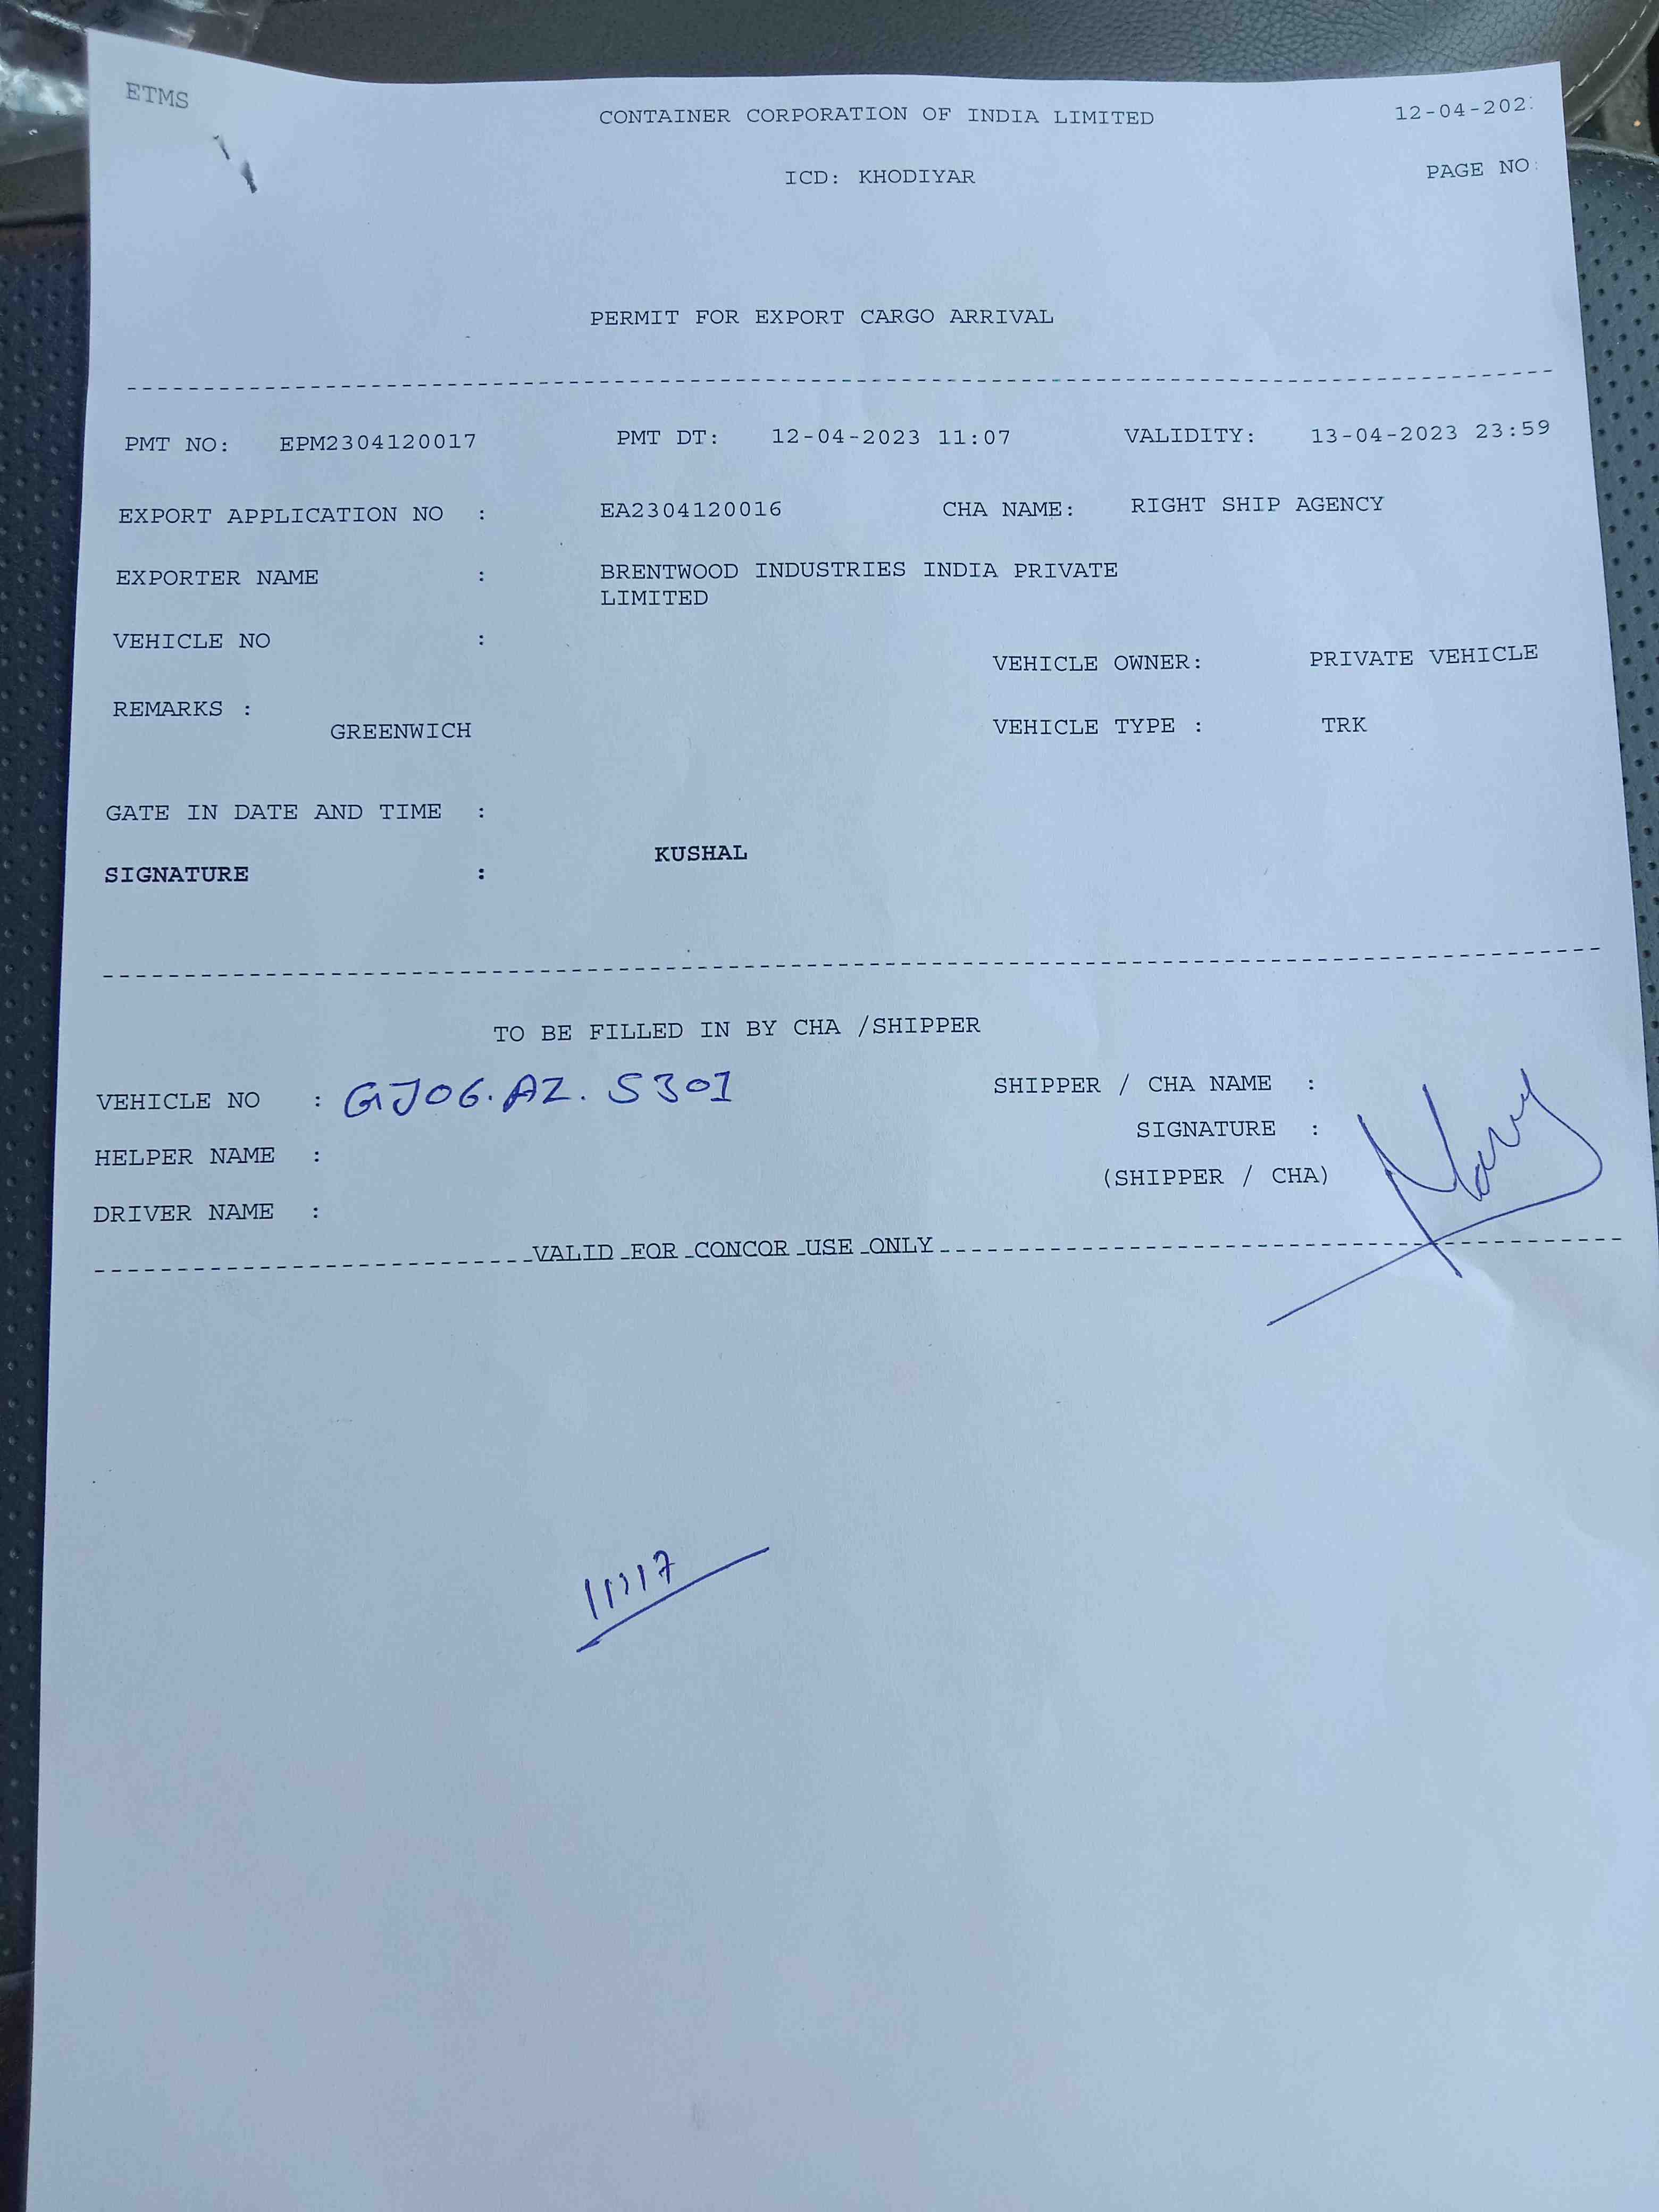 ETMS
CONTAINER CORPORATION OF INDIA LIMITED 12-04-202
ICD: KHODIYAR PAGE NO:
PERMIT FOR EXPORT CARGO ARRIVAL
PMT NO: EPM2304120017 PMT DT: 12-04-2023 11:07 VALIDITY: 13-04-2023 23:59
EXPORT APPLICATION NO : EA2304120016 CHA NAME: RIGHT SHIP AGENCY
EXPORTER NAME : BRENTWOOD INDUSTRIES INDIA PRIVATE
LIMITED
VEHICLE NO :
VEHICLE OWNER: PRIVATE VEHICLE
REMARKS :
GREENWICH VEHICLE TYPE : TRK
GATE IN DATE AND TIME :
KUSHAL
SIGNATURE :
TO BE FILLED IN BY CHA /SHIPPER
VEHICLE NO : GJ06.AZ.5301 SHIPPER / CHA NAME :
SIGNATURE :
HELPER NAME :
(SHIPPER / CHA)
DRIVER NAME :
VALID FOR CONCOR USE ONLY